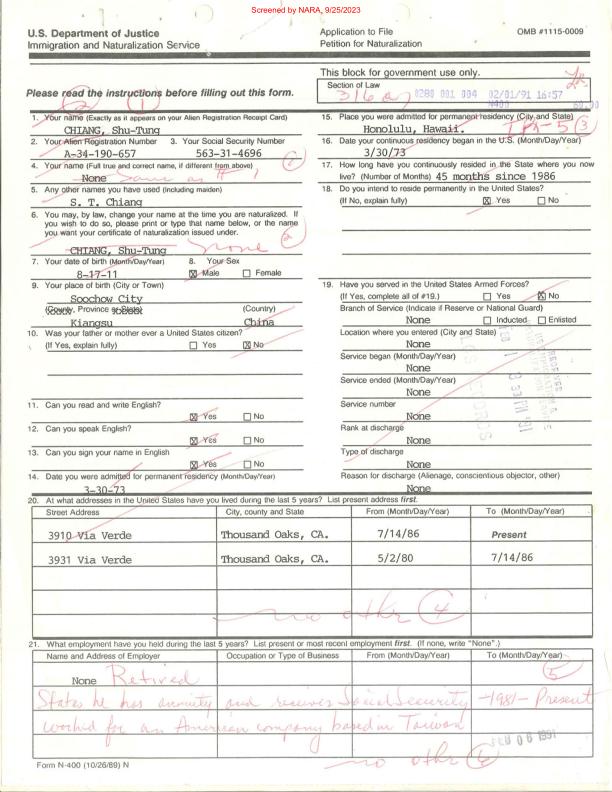 Screened by NARA, 9/25/2023
U.S. Department of Justice
Immigration and Naturalization Service
Application to File
Petition for Naturalization
OMB #1115-0009
Please read the instructions before filling out this form.
This block for government use only.
Section of Law
316 a 0280 001 004 02/01/91 16:57
N400 60.00
2 1
1. Your name (Exactly as it appears on your Alien Registration Receipt Card)
CHIANG, Shu-Tung
2. Your Alien Registration Number 3. Your Social Security Number
A-34-190-657 563-31-4696
4. Your name (Full true and correct name, if different from above)
None Same as # 1
5. Any other names you have used (Including maiden)
S. T. Chiang
6. You may, by law, change your name at the time you are naturalized. If
you wish to do so, please print or type that name below, or the name
you want your certificate of naturalization issued under.
CHIANG, Shu-Tung none 2
7. Your date of birth (Month/Day/Year) 8. Your Sex
8-17-11 Male Female
9. Your place of birth (City or Town)
Soochow City
(County, Province or State) (Country)
Kiangsu China
10. Was your father or mother ever a United States citizen?
(If Yes, explain fully) Yes No
11. Can you read and write English?
Yes No
12. Can you speak English?
Yes No
13. Can you sign your name in English
Yes No
14. Date you were admitted for permanent residency (Month/Day/Year)
3-30-73
15. Place you were admitted for permanent residency (City and State)
Honolulu, Hawaii. 3
16. Date your continuous residency began in the U.S. (Month/Day/Year)
3/30/73
17. How long have you continuously resided in the State where you now
live? (Number of Months) 45 months since 1986
18. Do you intend to reside permanently in the United States?
(If No, explain fully) Yes No
19. Have you served in the United States Armed Forces?
(If Yes, complete all of #19.) Yes No
Branch of Service (Indicate if Reserve or National Guard)
None Inducted Enlisted
Location where you entered (City and State)
None
Service began (Month/Day/Year)
None
Service ended (Month/Day/Year)
None
Service number
None
Rank at discharge
None
Type of discharge
None
Reason for discharge (Alienage, conscientious objector, other)
None
20. At what addresses in the United States have you lived during the last 5 years? List present address first.
Street Address City, county and State From (Month/Day/Year) To (Month/Day/Year)
3910 Via Verde Thousand Oaks, CA. 7/14/86 Present
3931 Via Verde Thousand Oaks, CA. 5/2/80 7/14/86
no other 4
21. What employment have you held during the last 5 years? List present or most recent employment first. (If none, write "None".)
Name and Address of Employer Occupation or Type of Business From (Month/Day/Year) To (Month/Day/Year)
None Retired 5
States he has annuity and receives Social Security -1981- Present
worked for an American company based in Taiwan
FEB 06 1991
no other 6
Form N-400 (10/26/89) N